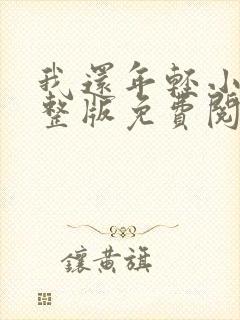 我還年輕小
整版免費閱
鑲黃旗